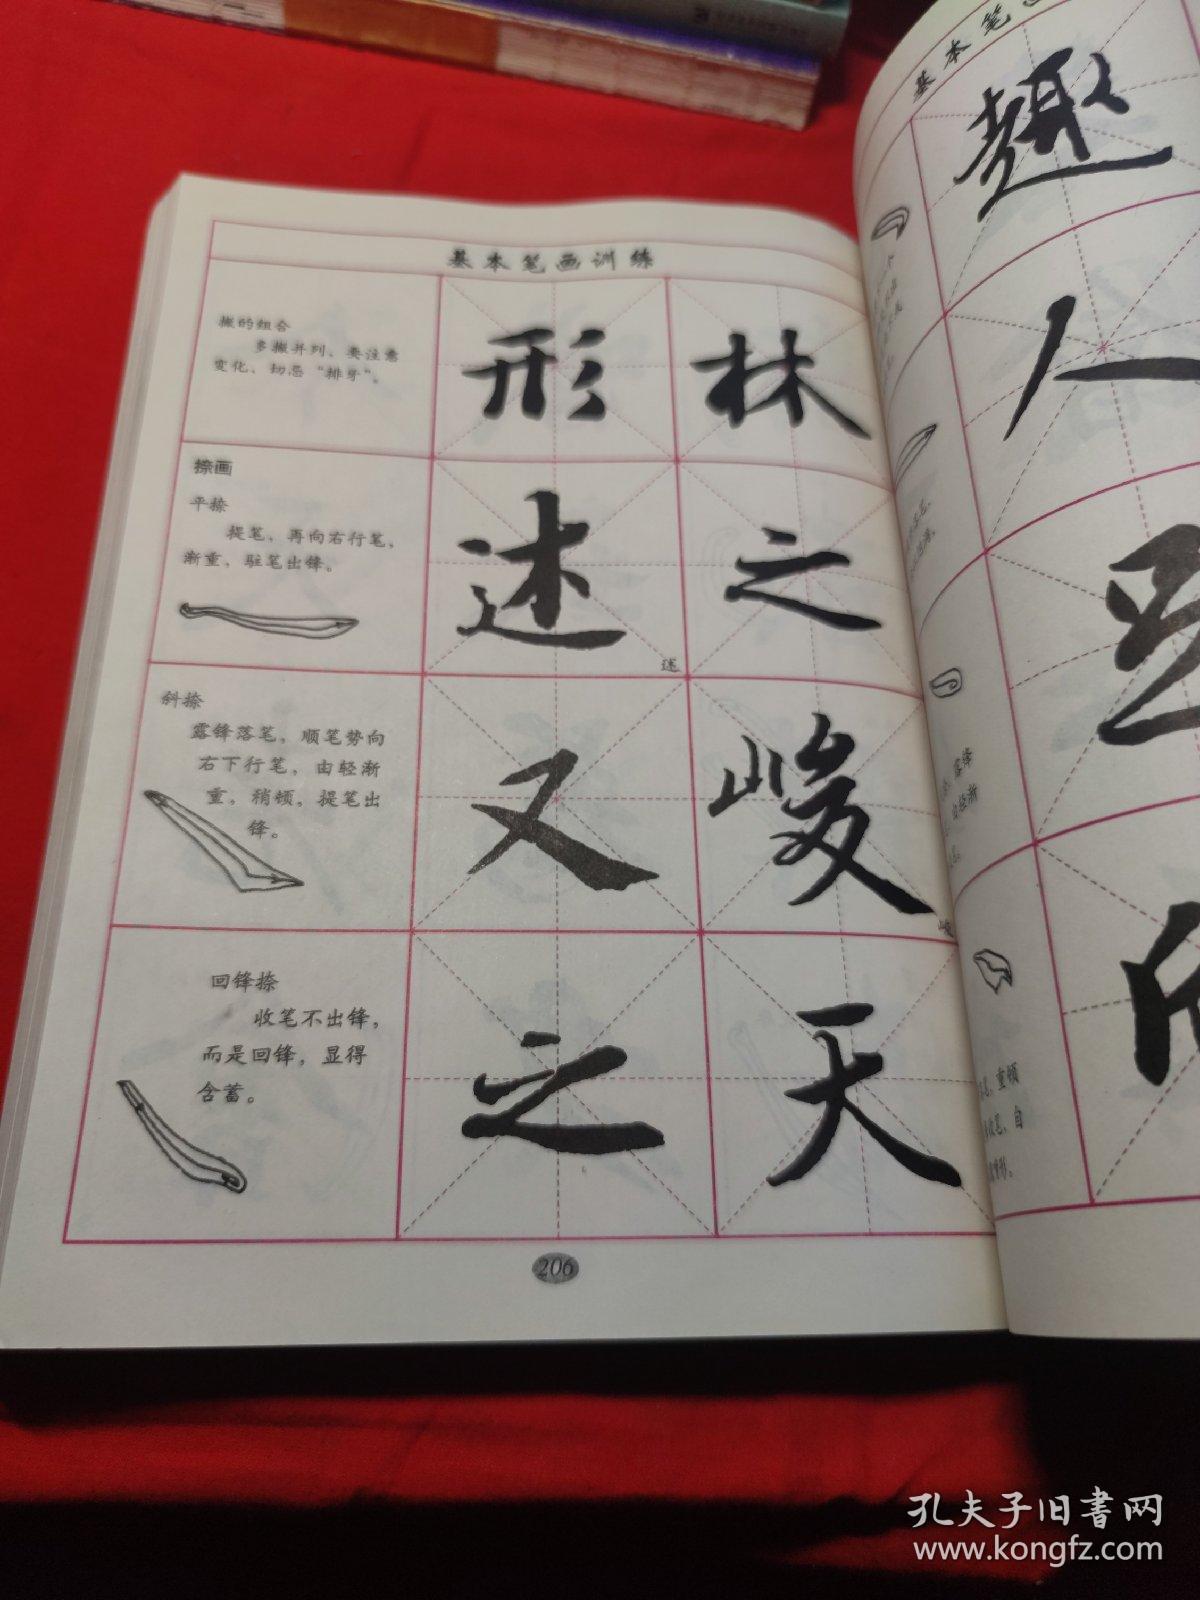 基本笔画训练
撇的组合
多撇并列、要注意
变化、切忌“排牙”。
形 林
捺画
平捺
提笔、再向右行笔，
渐重，驻笔出锋。
述 之
述
斜捺
露锋落笔，顺笔势向
右下行笔，由轻渐
重，稍顿，提笔出
锋。
又 峻
峻
回锋捺
收笔不出锋，
而是回锋，显得
含蓄。
之 天
206
基本笔
趣
人
露锋
由轻渐
重顿
自
孔夫子旧書网
www.kongfz.com